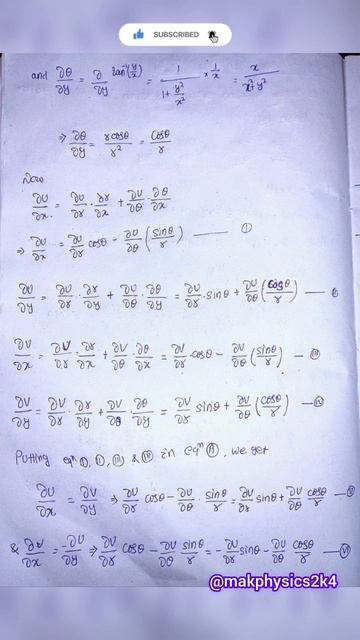 SUBSCRIBED
and ∂θ/∂y = ∂/∂y tan⁻¹(y/x) = 1/(1+y²/x²) × 1/x = x/(x²+y²)
⇒ ∂θ/∂y = r cosθ/r² = cosθ/r
Now
∂U/∂x = ∂U/∂r · ∂r/∂x + ∂U/∂θ · ∂θ/∂x
⇒ ∂U/∂x = ∂U/∂r cosθ − ∂U/∂θ (sinθ/r) —— Ⓘ
∂U/∂y = ∂U/∂r · ∂r/∂y + ∂U/∂θ · ∂θ/∂y = ∂U/∂r · sinθ + ∂U/∂θ (cosθ/r) —— Ⅱ
∂V/∂x = ∂V/∂r · ∂r/∂x + ∂V/∂θ · ∂θ/∂x = ∂V/∂r · cosθ − ∂V/∂θ (sinθ/r) — Ⅲ
∂V/∂y = ∂V/∂r · ∂r/∂y + ∂V/∂θ · ∂θ/∂y = ∂V/∂r sinθ + ∂V/∂θ (cosθ/r) — Ⅳ
Putting eqⁿ Ⅰ, Ⅱ, Ⅲ & Ⅳ in eqⁿ Ⓐ, we get
∂U/∂x = ∂V/∂y ⇒ ∂U/∂r cosθ − ∂U/∂θ · sinθ/r = ∂V/∂r sinθ + ∂V/∂θ cosθ/r — Ⅴ
& ∂V/∂x = −∂U/∂y ⇒ ∂V/∂r cosθ − ∂V/∂θ sinθ/r = −∂U/∂r sinθ − ∂U/∂θ cosθ/r — Ⅵ
@makphysics2k4